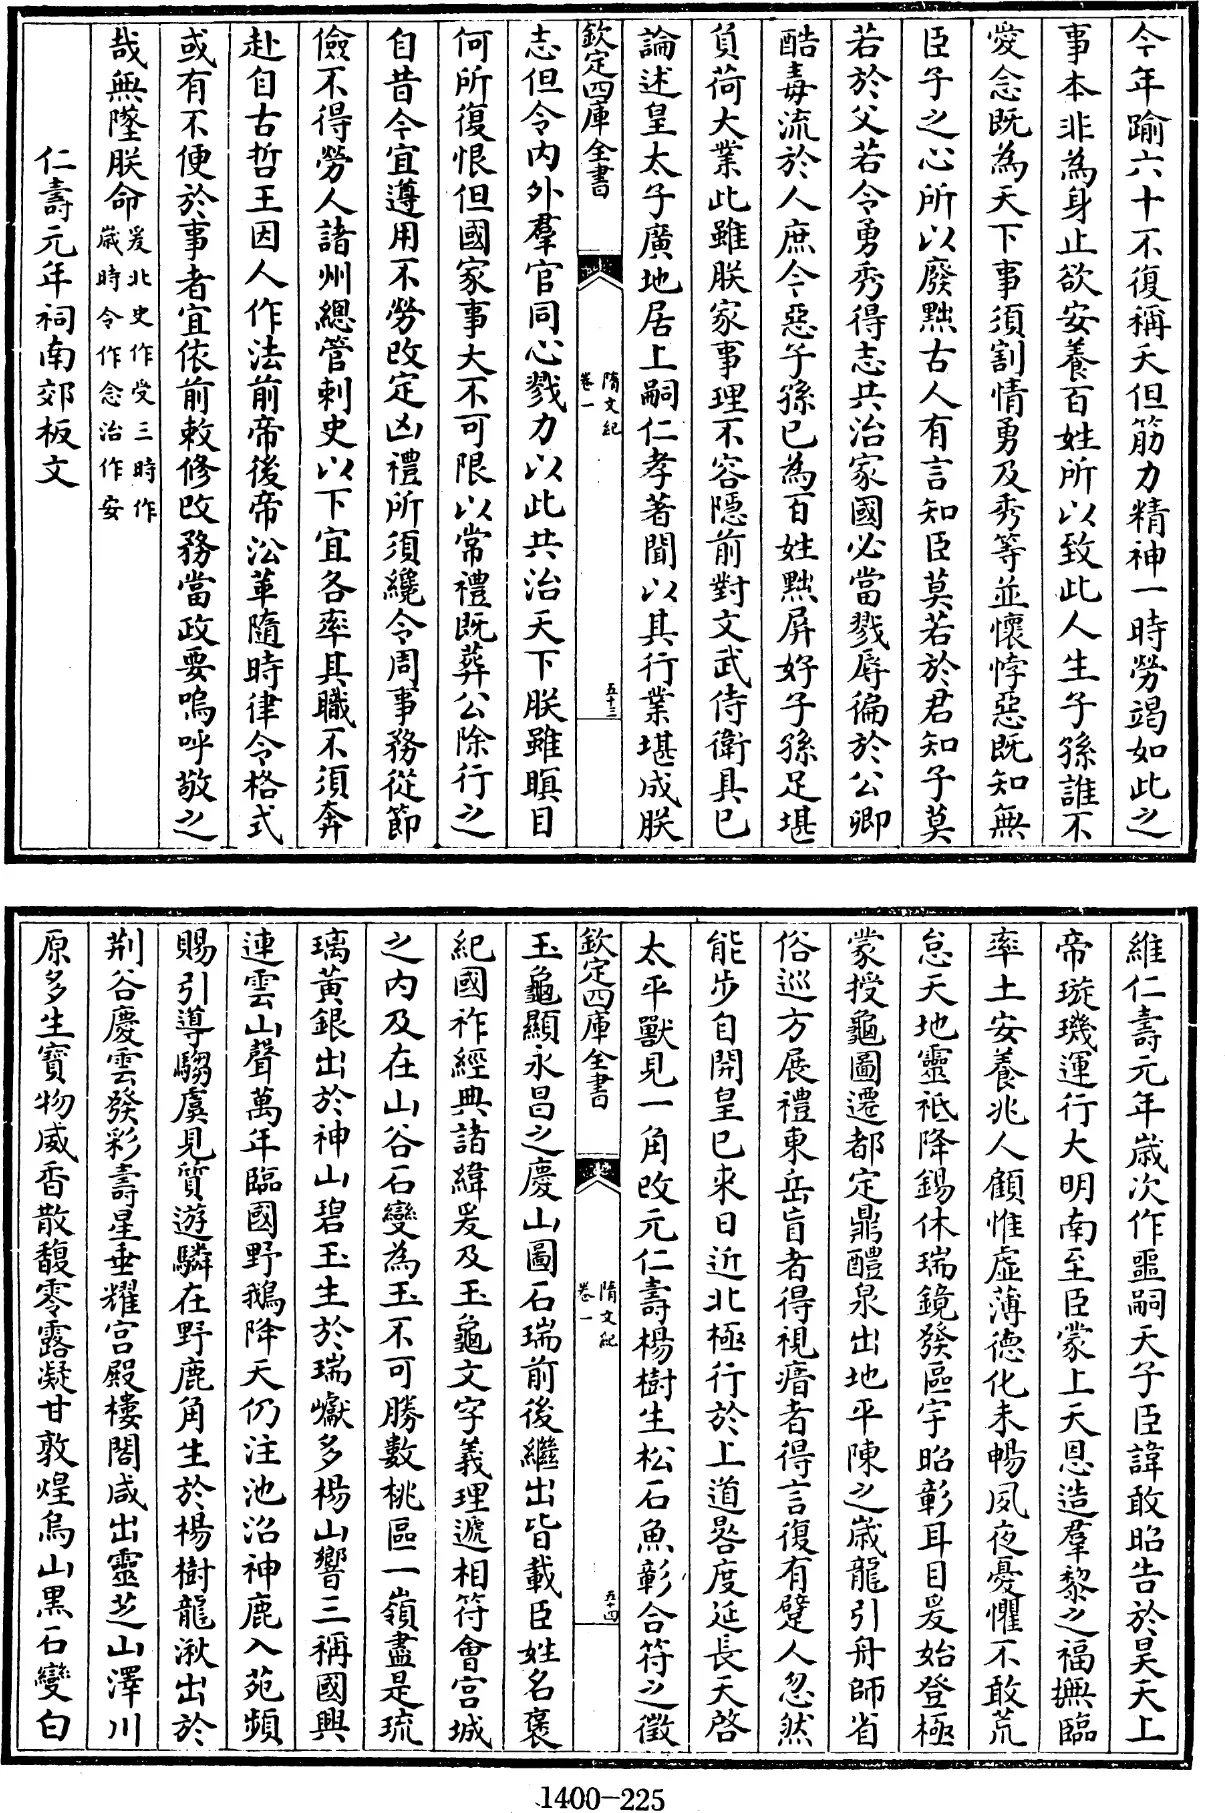 今年踰六十不復稱夭但筋力精神一時勞竭如此之
事本非為身止欲安養百姓所以致此人生子孫誰不
愛念既為天下事須割情勇及秀等並懷悖惡既知無
臣子之心所以廢黜古人有言知臣莫若於君知子莫
若於父若令勇秀得志共治家國必當戮辱徧於公卿
酷毒流於人庶今惡子孫已為百姓黜屏好子孫足堪
負荷大業此雖朕家事理不容隠前對文武侍衛具已
論述皇太子廣地居上嗣仁孝著聞以其行業堪成朕
欽定四庫全書
隋文紀
卷一
五十三
志但令内外羣官同心戮力以此共治天下朕雖瞑目
何所復恨但國家事大不可限以常禮既葬公除行之
自昔今宜遵用不勞改定凶禮所須纔令周事務從節
儉不得勞人諸州總管刺史以下宜各率其職不須奔
赴自古哲王因人作法前帝後帝沿革隨時律令格式
或有不便於事者宜依前敕修改務當政要嗚呼敬之
哉無墜朕命爰北史作受三時作
歲時令作念治作安
仁壽元年祠南郊板文
維仁壽元年歲次作噩嗣天子臣諱敢昭告於昊天上
帝璇璣運行大明南至臣蒙上天恩造羣黎之福撫臨
率土安養兆人顧惟虛薄德化未暢夙夜憂懼不敢荒
怠天地靈祗降錫休瑞鏡發區宇昭彰耳目爰始登極
蒙授龜圖遷都定鼎醴泉出地平陳之歲龍引舟師省
俗巡方展禮東岳盲者得視瘖者得言復有躄人忽然
能步自開皇已來日近北極行於上道晷度延長天啓
太平獸見一角改元仁壽楊樹生松石魚彰合符之徵
欽定四庫全書
隋文紀
卷一
五十四
玉龜顯永昌之慶山圖石瑞前後繼出皆載臣姓名褒
紀國祚經典諸緯爰及玉龜文字義理遞相符會宮城
之内及在山谷石變為玉不可勝數桃區一嶺盡是琉
璃黃銀出於神山碧玉生於瑞巘多楊山響三稱國興
連雲山聲萬年臨國野鵝降天仍注池沼神鹿入苑頻
賜引導騶虞見質遊驎在野鹿角生於楊樹龍湫出於
荆谷慶雲發彩壽星垂耀宮殿樓閣咸出靈芝山澤川
原多生寶物威香散馥零露凝甘敦煌烏山黑石變白
1400-225